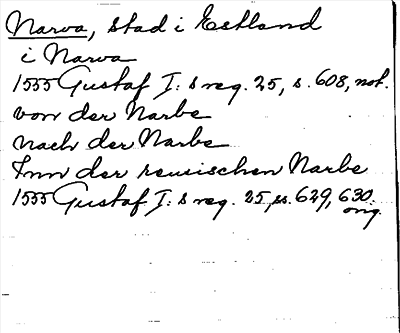 Narva, stad i Estland
i Narva
1555 Gustaf I:s reg. 25, s. 608, not.
von der Narbe
nach der Narbe
Inn der reuischen Narbe
1555 Gustaf I:s reg. 25, ss. 629, 630.
orig.